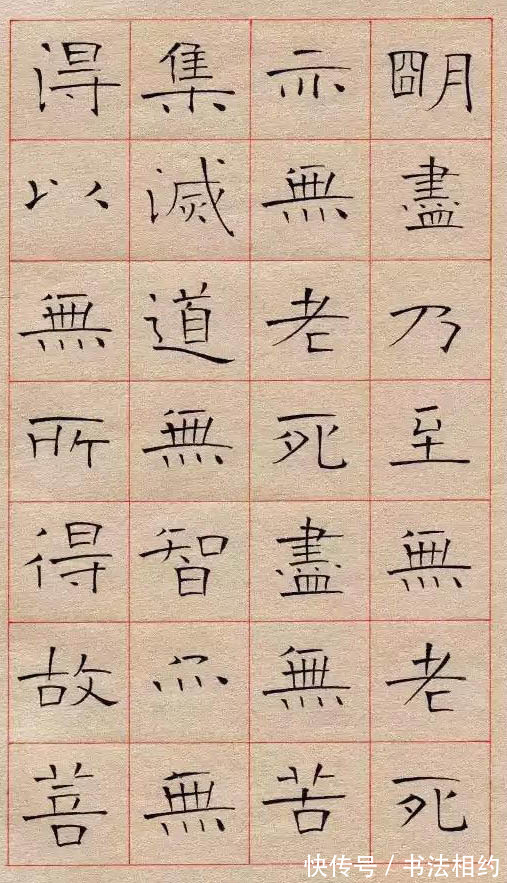 朙盡乃至無老死
亦無老死盡無苦
集滅道無智亦無
淂以無所得故菩
快传号 / 书法相约